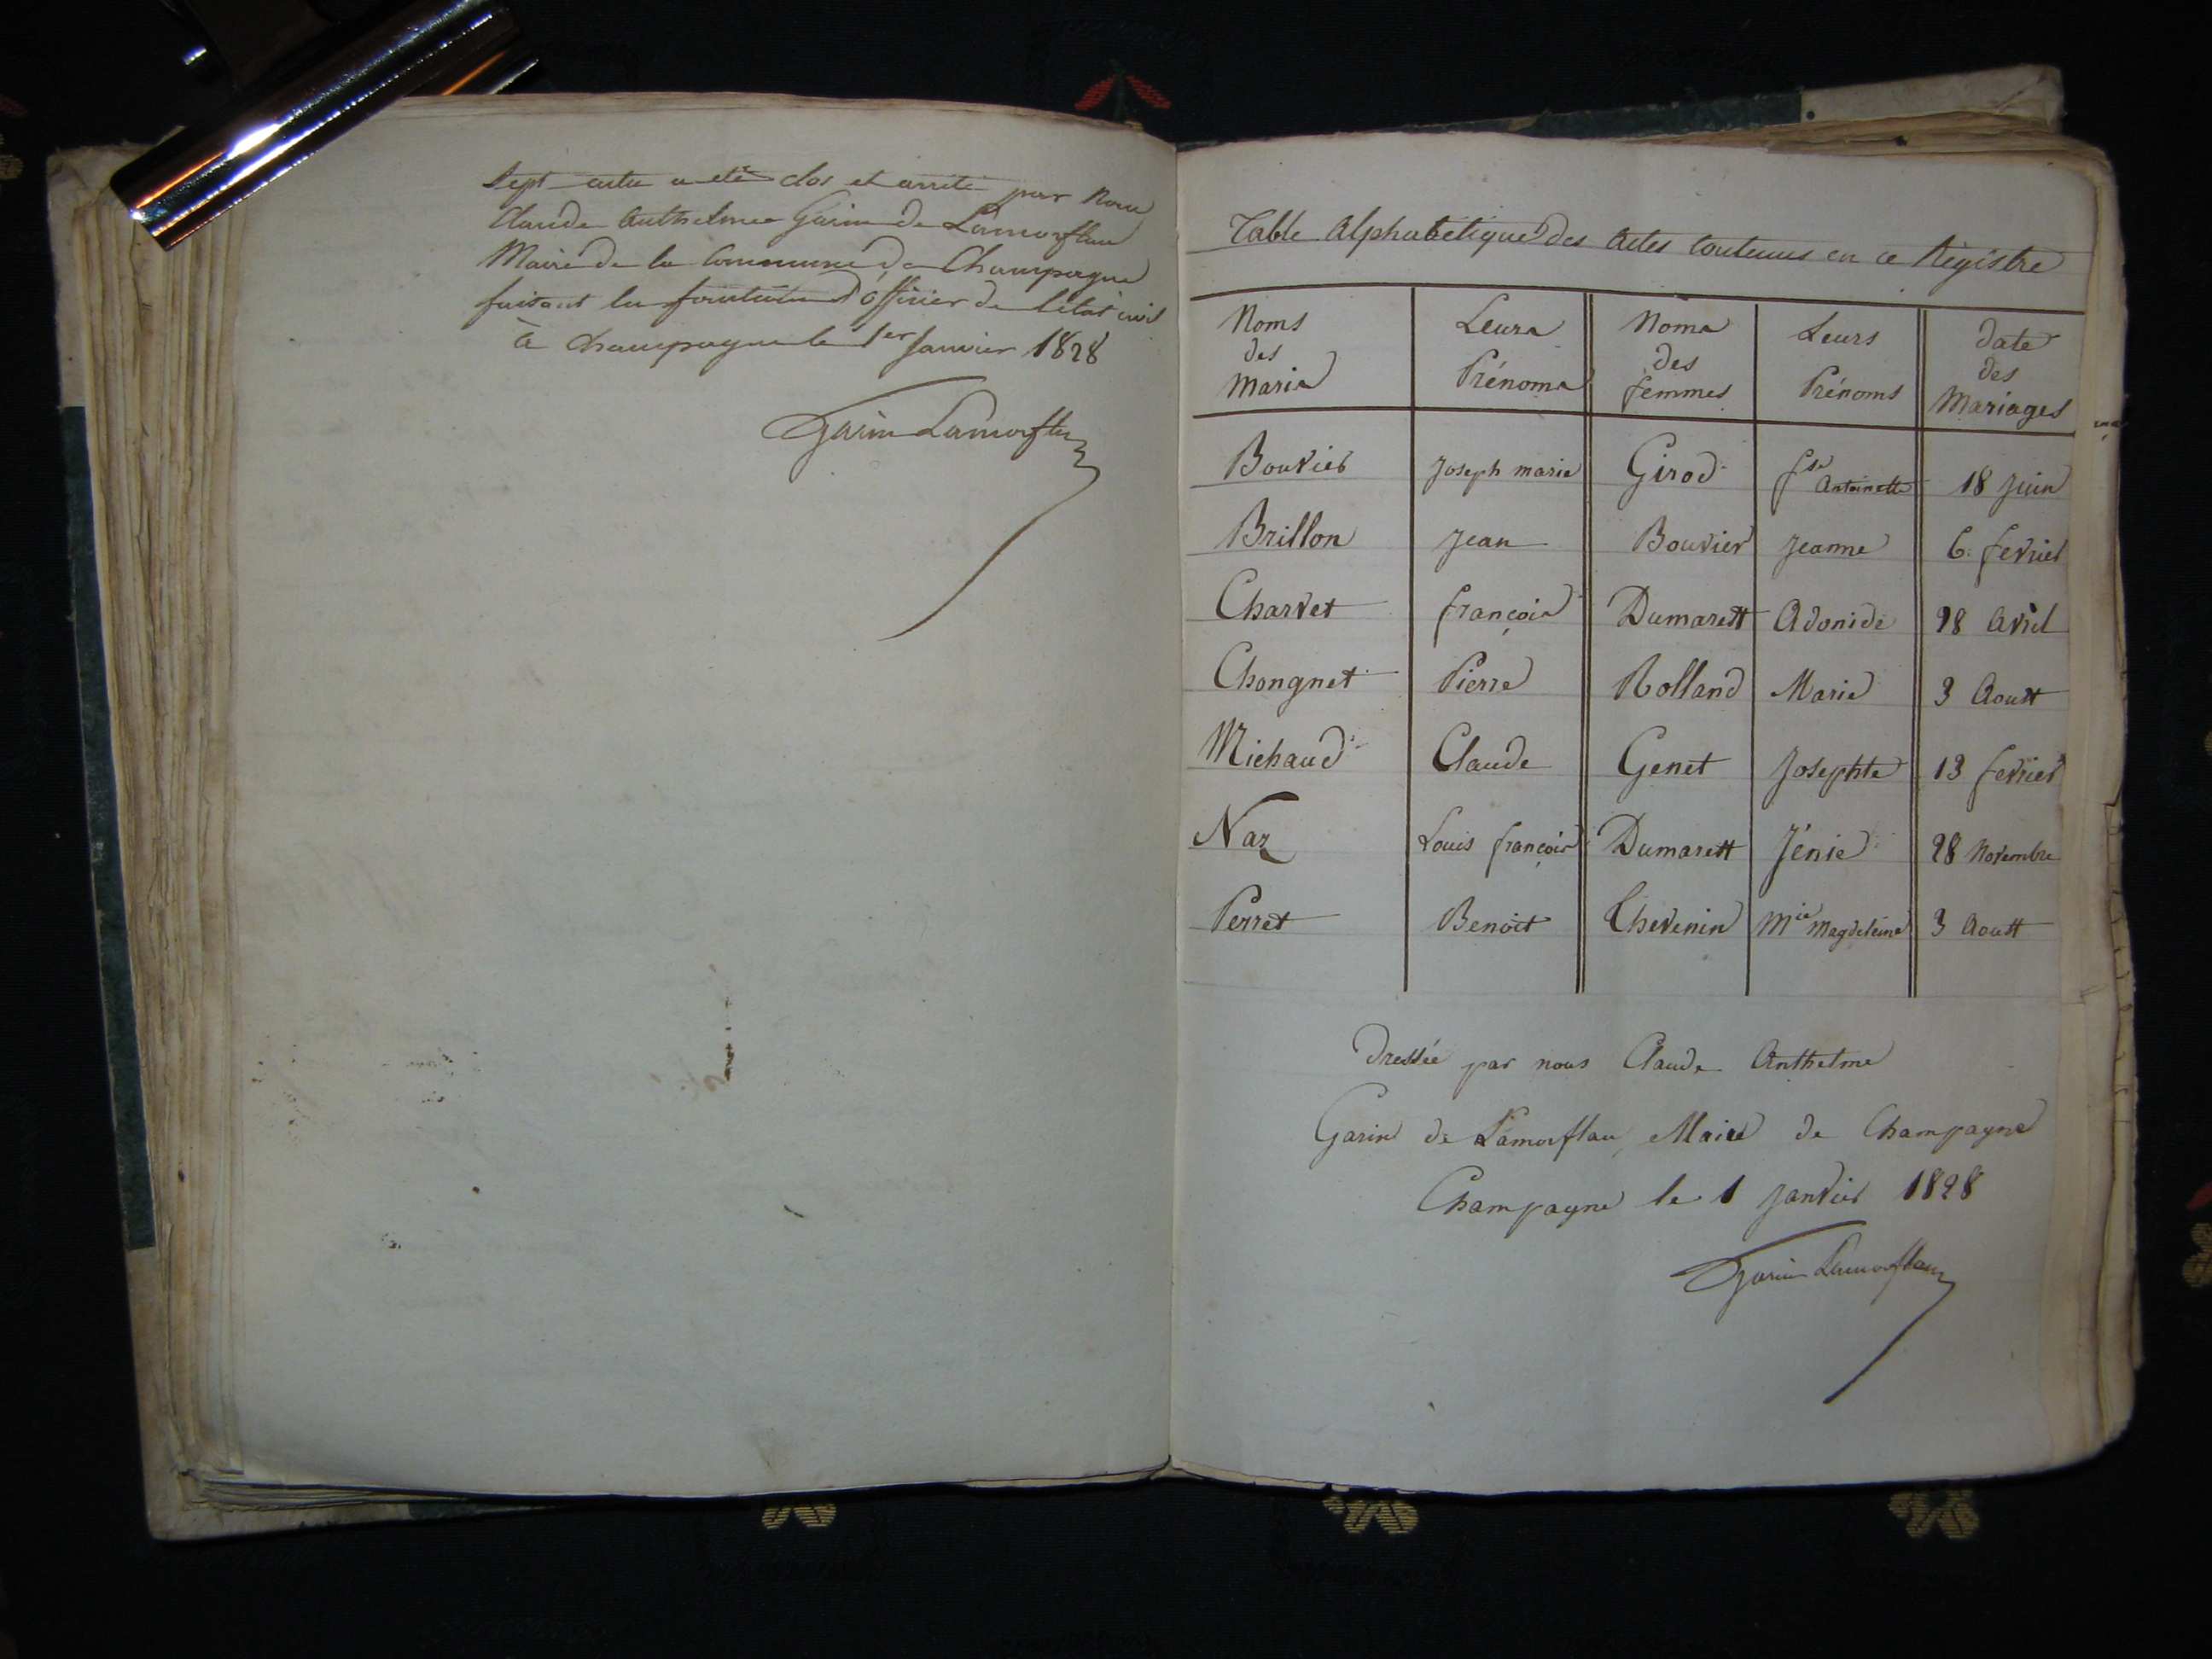 sept actes a été clos et arrêté par nous
Claude Anthelme Garin de Lamorflan
Maire de la Commune de Champagne
faisant les fonctions d'officier de l'état civil
à Champagne le 1er Janvier 1828
Garin Lamorflan
Table Alphabétique des Actes contenus en ce Régistre
Noms des Maris | Leurs Prénoms | Noms des femmes | Leurs Prénoms | date des Mariages
Bouvier | Joseph marie | Girod | fse Antoinette | 18 Juin
Brillon | Jean | Bouvier | Jeanne | 6 fevrier
Charvet | françois | Dumarest | Adonide | 28 Avril
Chongnet | Pierre | Rolland | Marie | 3 Aoust
Michaud | Claude | Genet | Josephte | 13 fevrier
Naz | Louis françois | Dumarest | Jénie | 28 Novembre
Perret | Benoit | Thevenin | Mie Magdeleine | 3 Aoust
Dressée par nous Claude Anthelme
Garin de Lamorflan, Maire de Champagne
Champagne le 1 Janvier 1828
Garin Lamorflan